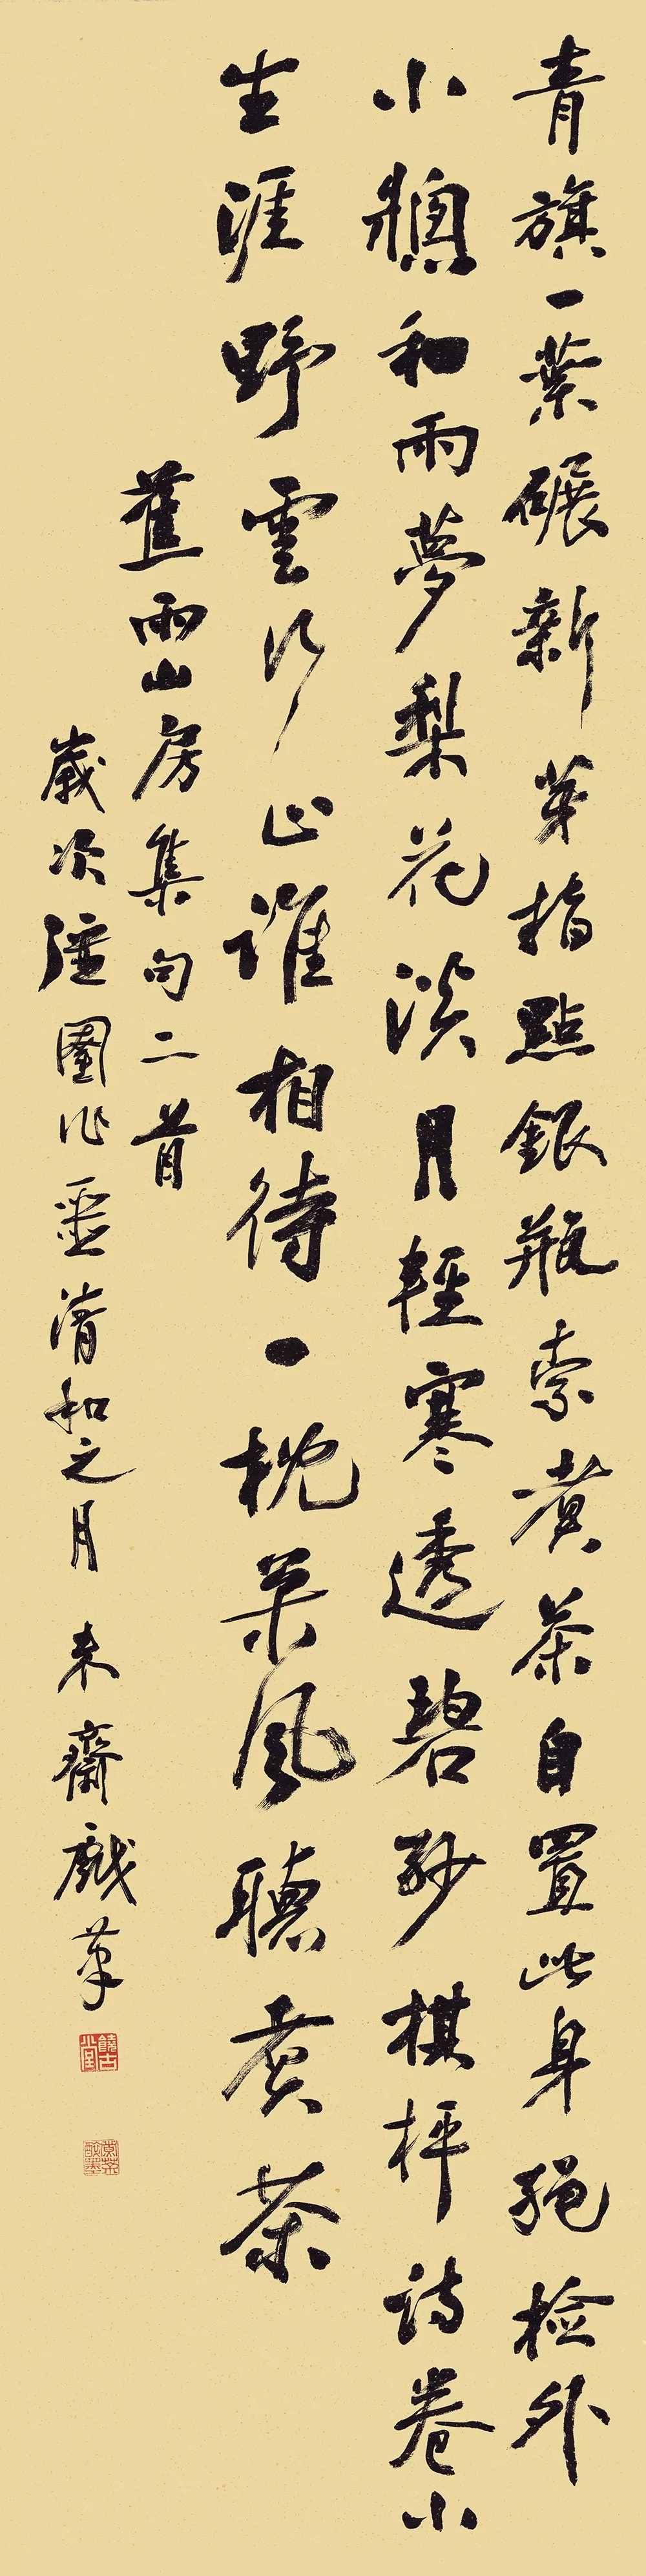 青旗一葉碾新芽指點銀瓶索煮茶自置此身繩檢外
小牕和雨夢梨花淡月輕寒透碧紗棋枰詩卷小
生涯野雲行止誰相待一枕枀風聽煮茶
舊雨山房集句二首
歲次彊圉作噩清和之月 耒齋戲筆